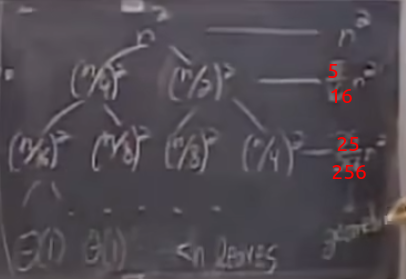 n² n²
(n/4)² (n/2)² 5/16 n²
(n/16)² (n/8)² (n/8)² (n/4)² 25/256 n²
. . . . .
Θ(1) Θ(1) <n leaves